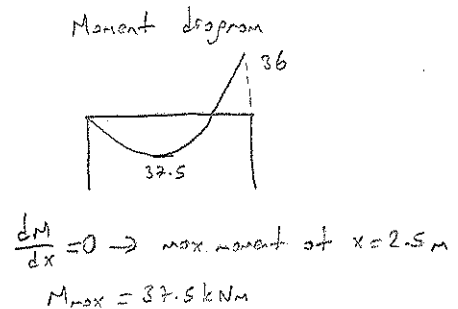 Moment diagram
36
37.5
dM/dx = 0 → max. moment at x = 2.5 m
Mmax = 37.5 kNm